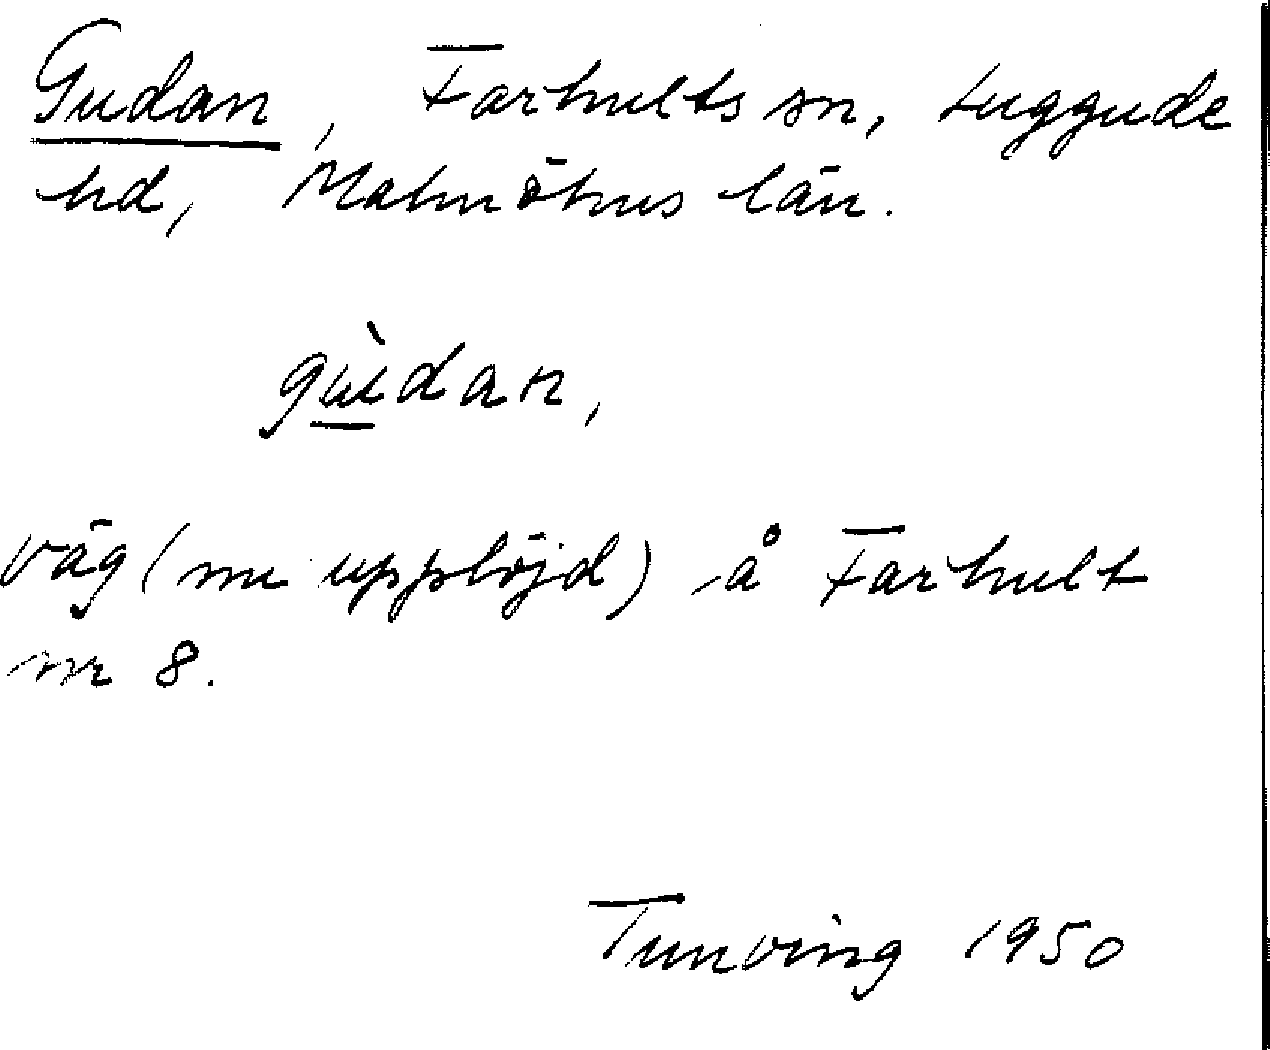 Gudan, Farhults sn, Luggude
hd, Malmöhus län.
gùdan,
väg (nu upplöjd) å Farhult
nr 8.
Tunving 1950